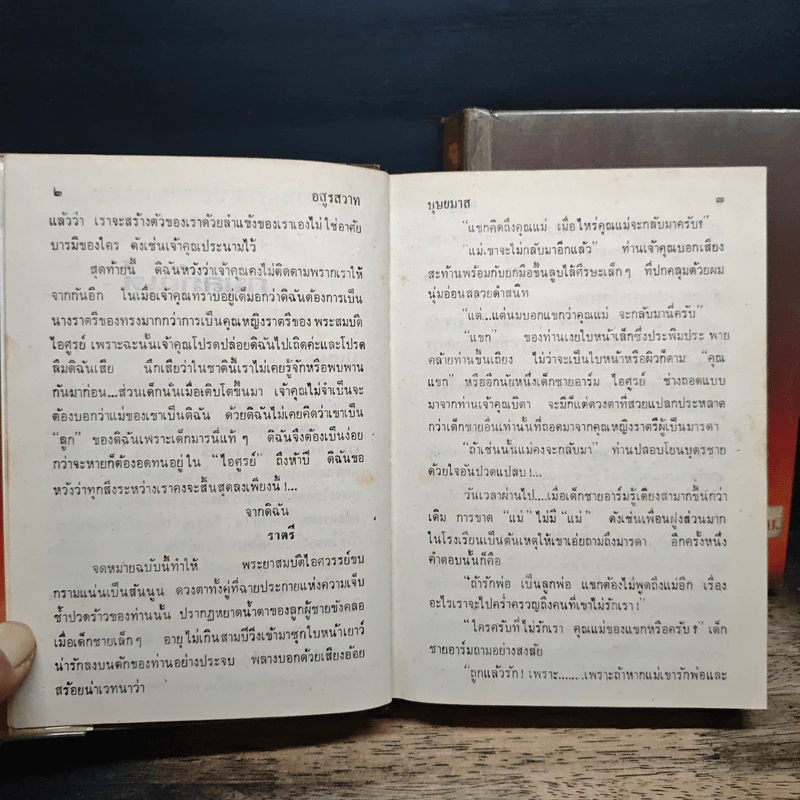 ๒ อสูรสวาท
แล้วว่า เราจะสร้างตัวของเราด้วยลำแข้งของเราเองไม่ใช่อาศัย
บารมีของใคร ดังเช่นเจ้าคุณประนามไว้
สุดท้ายนี้ ดิฉันหวังว่าเจ้าคุณคงไม่ติดตามพรากเราให้
จากกันอีก ในเมื่อเจ้าคุณทราบอยู่เต็มอกว่าดิฉันต้องการเป็น
นางราตรีของทรงมากกว่าการเป็นคุณหญิงราตรีของ พระสมบัติ
ไอศูรย์ เพราะฉะนั้นเจ้าคุณโปรดปล่อยดิฉันไปเถิดค่ะและโปรด
ลืมดิฉันเสีย นึกเสียว่าในชาตินี้เราไม่เคยรู้จักหรือพบพาน
กันมาก่อน...ส่วนเด็กนั่นเมื่อเติบโตขึ้นมา เจ้าคุณไม่จำเป็นจะ
ต้องบอกว่าแม่ของเขาเป็นดิฉัน ด้วยดิฉันไม่เคยคิดว่าเขาเป็น
“ลูก” ของดิฉันเพราะเด็กมารนี่แท้ๆ ดิฉันจึงต้องเป็นง่อย
กว่าจะหายก็ต้องอดทนอยู่ใน “ไอศูรย์” ถึงห้าปี ดิฉันขอ
หวังว่าทุกสิ่งระหว่างเราคงจะสิ้นสุดลงเพียงนี้!...
จากดิฉัน
ราตรี
จดหมายฉบับนี้ทำให้ พระยาสมบัติไอศวรรย์ขบ
กรามแน่นเป็นสันนูน ดวงตาทั้งคู่ที่ฉายประกายแห่งความเจ็บ
ช้ำปวดร้าวของท่านนั้น ปรากฏหยาดน้ำตาของลูกผู้ชายขังคลอ
เมื่อเด็กชายเล็กๆ อายุไม่เกินสามปีวิ่งเข้ามาซุกใบหน้าเยาว์
น่ารักลงบนตักของท่านอย่างประจบ พลางบอกด้วยเสียงอ้อย
สร้อยน่าเวทนาว่า
บุษยมาส ๗
“แขกคิดถึงคุณแม่ เมื่อไหร่คุณแม่จะกลับมาครับ?”
“แม่.ขาจะไม่กลับมาอีกแล้ว” ท่านเจ้าคุณบอกเสียง
สะท้านพร้อมกับยกมือขึ้นลูบไล้ศีรษะเล็กๆ ที่ปกคลุมด้วยผม
นุ่มอ่อนสลวยดำสนิท
“แต่...แต่นมบอกแขกว่าคุณแม่ จะกลับมานี่ครับ”
“แขก” ของท่านเงยใบหน้าเล็กซึ่งประพิมประ พาย
คล้ายท่านขึ้นเถียง ไม่ว่าจะเป็นใบหน้าหรือผิวก็ตาม “คุณ
แขก” หรืออีกนัยหนึ่งเด็กชายอาร์ม ไอศูรย์ ช่างถอดแบบ
มาจากท่านเจ้าคุณบิดา จะมีก็แต่ดวงตาที่สวยแปลกประหลาด
กว่าเด็กชายอื่นเท่านั้นที่ถอดมาจากคุณหญิงราตรีผู้เป็นมารดา
“ถ้าเช่นนั้นแม่คงจะกลับมา” ท่านปลอบโยนบุตรชาย
ด้วยใจอันปวดแปลบ!...
วันเวลาผ่านไป....เมื่อเด็กชายอาร์มรู้เดียงสามากขึ้นกว่า
เดิม การขาด “แม่” ไม่มี “แม่” ดังเช่นเพื่อนฝูงส่วนมาก
ในโรงเรียนเป็นต้นเหตุให้เขาเอ่ยถามถึงมารดา อีกครั้งหนึ่ง
คำตอบนั้นก็คือ
“ถ้ารักพ่อ เป็นลูกพ่อ แขกต้องไม่พูดถึงแม่อีก เรื่อง
อะไรเราจะไปคร่ำครวญถึงคนที่เขาไม่รักเรา!”
“ใครครับที่ไม่รักเรา คุณแม่ของแขกหรือครับ?” เด็ก
ชายอาร์มถามอย่างสงสัย
“ถูกแล้วรัก! เพราะ.......เพราะถ้าหากแม่เขารักพ่อและ